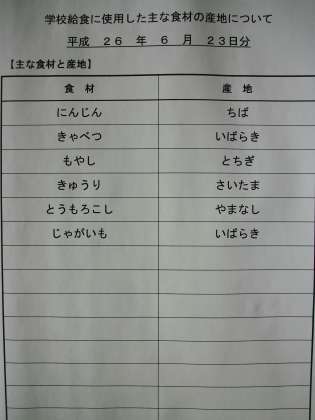 学校給食に使用した主な食材の産地について
平成 26 年 6 月 23日分
【主な食材と産地】
食 材 産 地
にんじん ちば
きゃべつ いばらき
もやし とちぎ
きゅうり さいたま
とうもろこし やまなし
じゃがいも いばらき